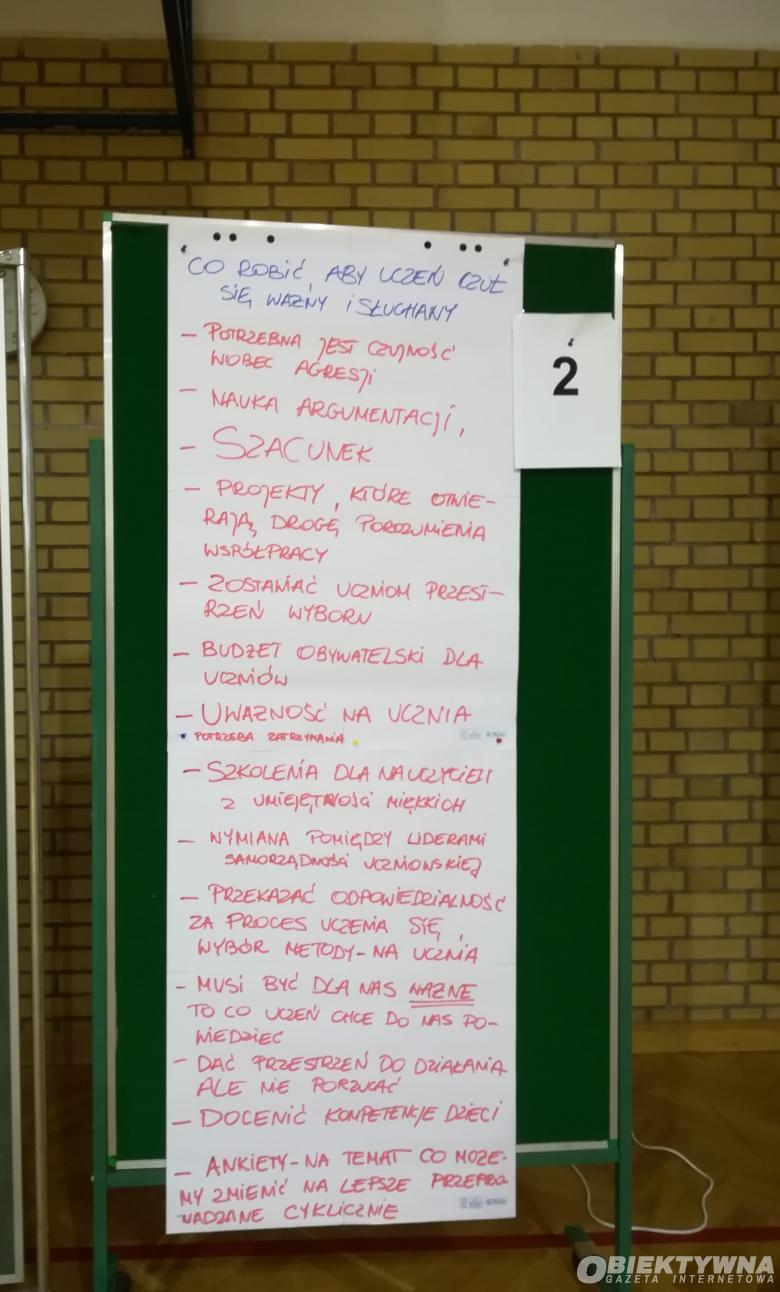 CO ROBIĆ, ABY UCZEŃ CZUŁ
SIĘ WAŻNY I SŁUCHANY
2
- POTRZEBNA JEST CZUJNOŚĆ
WOBEC AGRESJI
- NAUKA ARGUMENTACJI,
- SZACUNEK
- PROJEKTY, KTÓRE OTWIE-
RAJĄ DROGĘ POROZUMIENIA
WSPÓŁPRACY
- ZOSTAWIAĆ UCZNIOM PRZEST-
RZEŃ WYBORU
- BUDŻET OBYWATELSKI DLA
UCZNIÓW
- UWAŻNOŚĆ NA UCZNIA
POTRZEBA ZATRZYMANIA
- SZKOLENIA DLA NAUCZYCIELI
Z UMIEJĘTNOŚCI MIĘKKICH
- WYMIANA POMIĘDZY LIDERAMI
SAMORZĄDNOŚCI UCZNIOWSKIEJ
- PRZEKAZAĆ ODPOWIEDZIALNOŚĆ
ZA PROCES UCZENIA SIĘ,
WYBÓR METODY - NA UCZNIA
- MUSI BYĆ DLA NAS WAŻNE
TO CO UCZEŃ CHCE DO NAS PO-
WIEDZIEĆ
- DAĆ PRZESTRZEŃ DO DZIAŁANIA
ALE NIE PORZUCAĆ
- DOCENIĆ KOMPETENCJE DZIECI
- ANKIETY - NA TEMAT CO MOŻE-
MY ZMIENIĆ NA LEPSZE PRZEPRO
WADZANE CYKLICZNIE
OBIEKTYWNA
GAZETA INTERNETOWA